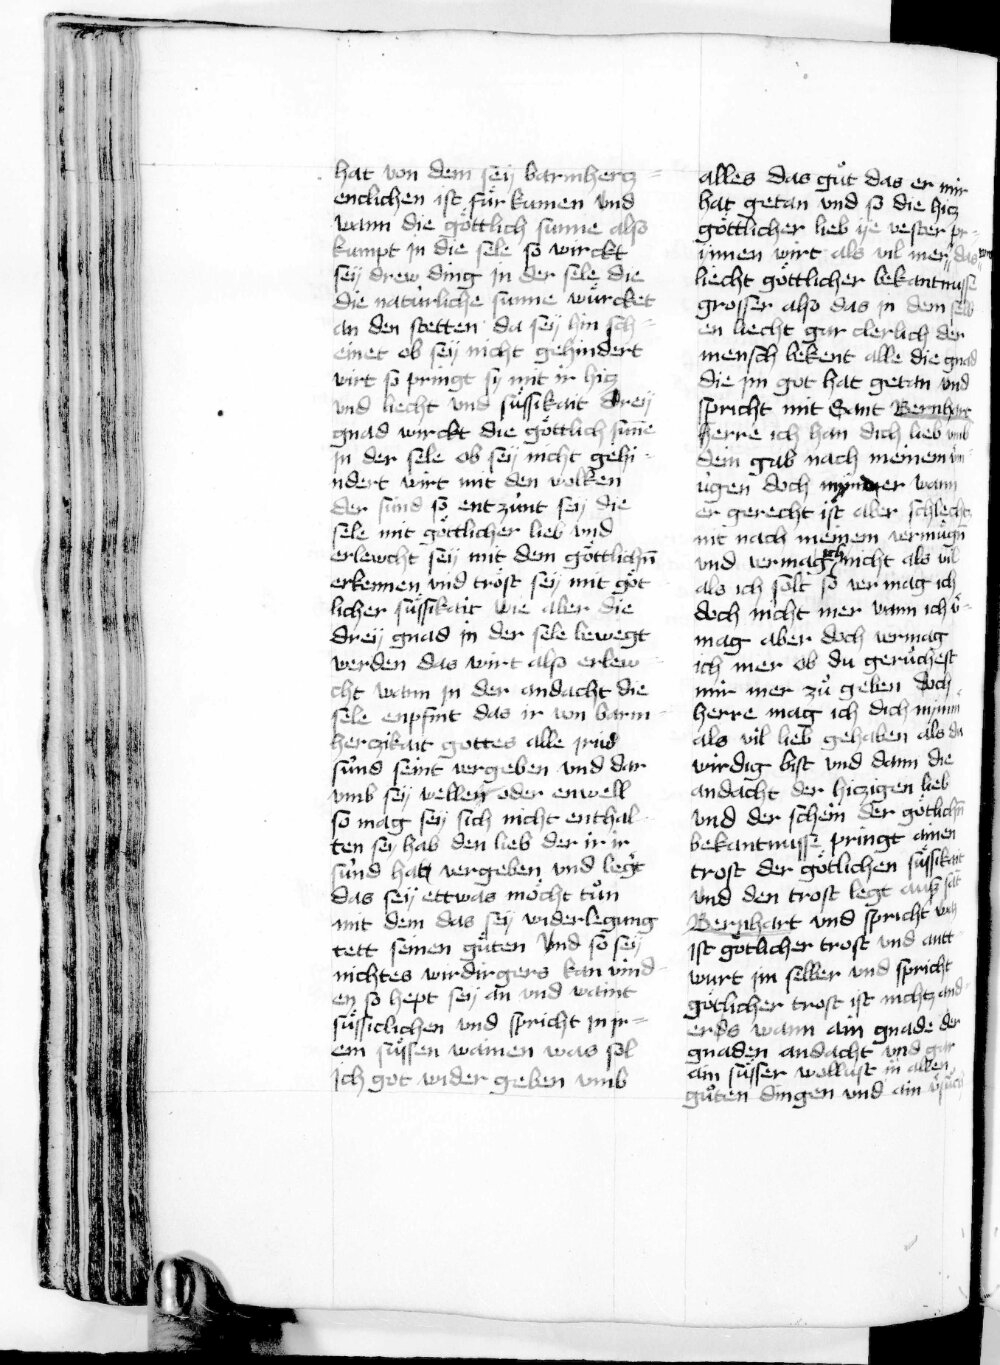 hat von dem seÿ barmhercz=
enclichen ist fur kumen vnd
wann die göttlich sunne also
kumpt in die sele so wirckt
seÿ drew ding in der sele die
die natürliche sunne würcket
an den stetten da seÿ hin sch=
einet ob seÿ nicht gehindert
wirt so pringt sy mit ir hicz
vnd liecht vnd süssikait dreÿ
gnad wirckt die göttlich suñe
in der sele ob seÿ nicht gehi-
ndert wirt mit den wolken
der sünd so entzünt seÿ die
sele mit göttlicher lieb vnd
erlewcht seÿ mit dem göttlichñ
erkennen vnd tröst seÿ mit göt
licher süssikait wie aber die
dreÿ gnad in der sele bewegt
werden das wirt also erlew-
cht wann in der andacht die
sele enpfint das ir von barm-
herczikait gottes alle irü
sünd seint vergeben vnd dar
vmb seÿ wellen oder enwell
so mag seÿ sich nicht enthal-
ten seÿ hab den lieb der ir ir
sünd hat vergeben vnd legt
das seÿ ettwas möcht tůn
mit dem das seÿ widerlegung
tett seinen gůten vnd so seÿ
nichtes wirdirgers kan vind-
en so hept seÿ an vnd waint
süssiclichen vnd spricht in ir=
em süssen wainen was sol
ich got wider geben vmb
alles das gůt das er mir
hat getan vnd so die hicz
göttlicher lieb ÿe vester pr-
innen wirt als vil mer das
liecht göttlicher bekantnusse
grosser also das in dem selb
en liecht gar clerlich der
mensch bekent alle die gnad
die im got hat getan vnd
spricht mit Sant Bernhart
herre ich han dich lieb vmb
dein gab nach meinem
ügen doch mynder wann
er gerecht ist aber schlecht
nit nach meinem vermügñ
vnd vermag ich nicht als vil
als ich solt so vermag ich
doch nicht mer wann ich v̈-
mag aber doch vermag
ich mer ob du gerůchest
mir mer zů geben doch
herre mag ich dich nymm
als vil lieb gehaben als du
wirdig bist vnd dann die
andacht der hiczigen lieb
vnd der schein der götlichñ
bekantnusse pringt ainen
trost der götlichen süssikait
vnd den trost legt auß sät
Bernhart vnd spricht waz
ist götlicher trost vnd antt
wurt im selber vnd spricht
götlicher trost ist nichtz and
erds wann ain gnade der
gnaden andacht vnd gar
ain süsser wollust in allen
gůten dingen vnd ain